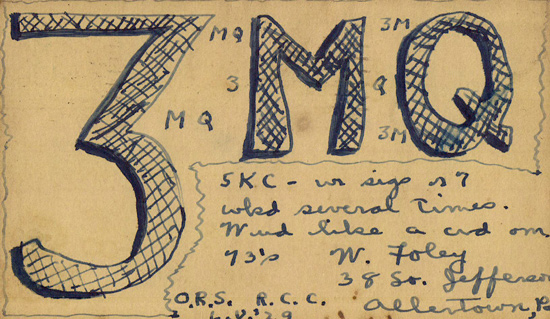 3 MQ
MQ
3
MQ
3M
Q
3M
5KC - ur sigs r 7
wkd several times.
Wud like a crd om.
73's W. Foley
38 So. Jefferson
Allentown, Pa
O.R.S. R.C.C.